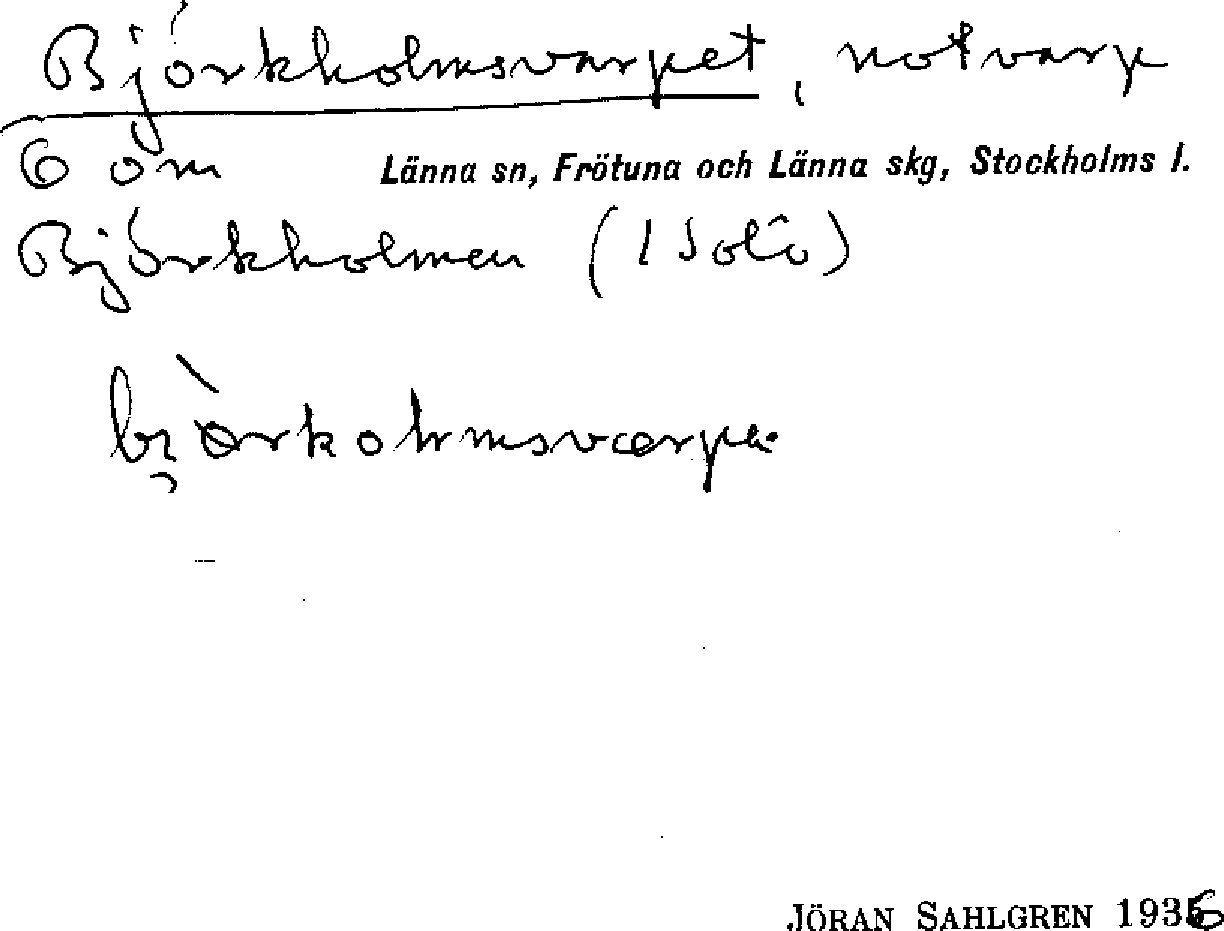 Björkholmsvarpet, notvarp
6 öm Länna sn, Frötuna och Länna skg, Stockholms l.
Björkholmen (Isolö)
bjòrkolmsværpe
JÖRAN SAHLGREN 1936